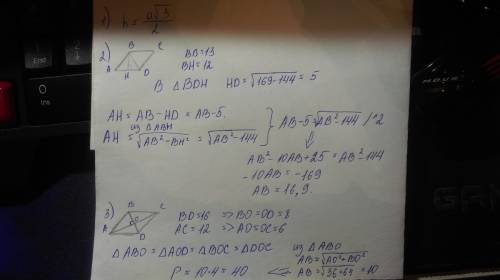 1) h = a√3 / 2
2) B C A H D
BD = 13
BH = 12
В △BDH HD = √169-144 = 5
AH = AB - HD = AB - 5.
из △ABH
AH = √AB²-BH² = √AB²-144
AB - 5 = √AB²-144 /^2
⇓
AB² - 10AB + 25 = AB² - 144
- 10AB = - 169
AB = 16,9.
3) B C A D O
BD = 16 => BO = OD = 8
AC = 12 => AO = OC = 6
△ABO = △AOD = △BOC = △DOC
из △ABO
AB = √AO²+BO²
AB = √36+64 = 10
P = 10·4 = 40 <=
End